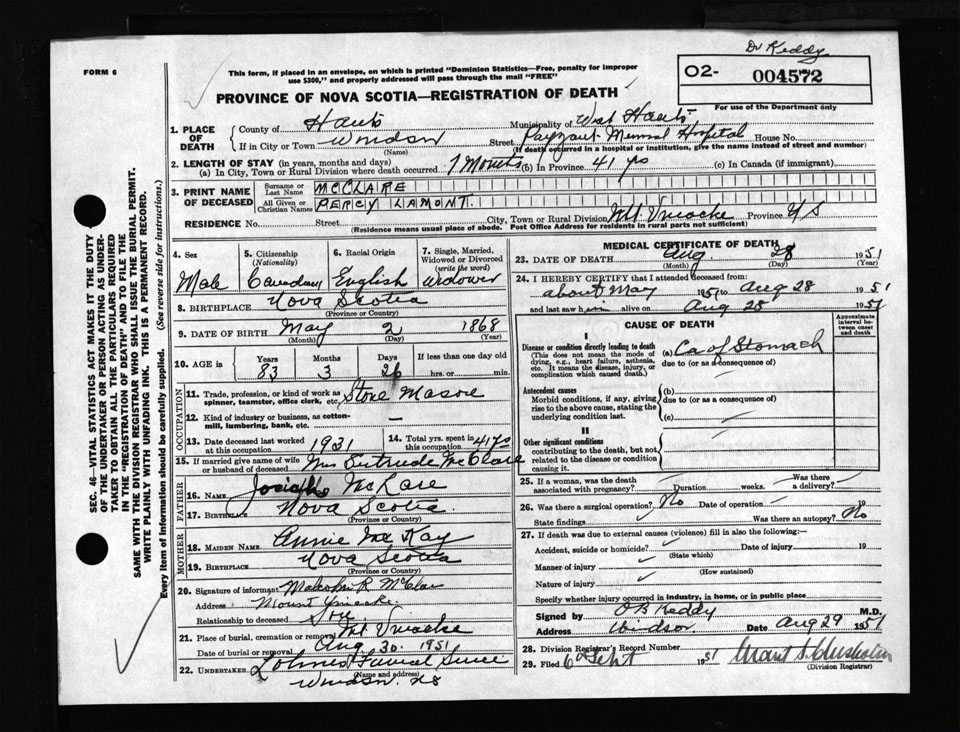 Dr Keddy
FORM 6
This form, if placed in an envelope, on which is printed "Dominion Statistics—Free, penalty for improper
use $300," and properly addressed will pass through the mail "FREE"
02- 004572
For use of the Department only
PROVINCE OF NOVA SCOTIA—REGISTRATION OF DEATH
1. PLACE OF DEATH
County of Hants Municipality of West Hants
If in City or Town Windsor Street Payzant Memorial Hospital House No.
(Name) (If death occurred in a hospital or institution, give the name instead of street and number)
2. LENGTH OF STAY (in years, months and days)
(a) In City, Town or Rural Division where death occurred 7 Months (b) In Province 41 yrs (c) In Canada (if immigrant)
3. PRINT NAME OF DECEASED
Surname or Last Name MCCLARE
All Given or Christian Names PERCY LAMONT.
RESIDENCE No. Street City, Town or Rural Division Mt. Uniacke Province N S
(Residence means usual place of abode. Post Office Address for residents in rural parts not sufficient)
4. Sex Male
5. Citizenship (Nationality) Canadian
6. Racial Origin English
7. Single, Married, Widowed or Divorced (write the word) Widower
8. BIRTHPLACE Nova Scotia
(Province or Country)
9. DATE OF BIRTH May 2 1868
(Month) (Day) (Year)
10. AGE in Years 83 Months 3 Days 26 If less than one day old
hrs. or min.
OCCUPATION
11. Trade, profession, or kind of work as spinner, teamster, office clerk, etc. Stone Mason
12. Kind of industry or business, as cotton-mill, lumbering, bank, etc. —
13. Date deceased last worked at this occupation 1931
14. Total yrs. spent in this occupation 41 yrs
15. If married give name of wife or husband of deceased Mrs Gertrude McClare
FATHER
16. NAME McClare
17. BIRTHPLACE Nova Scotia
(Province or Country)
MOTHER
18. MAIDEN NAME Annie McKay
19. BIRTHPLACE Nova Scotia
(Province or Country)
20. Signature of informant Malcolm R McClare
Address Mount Uniacke
Relationship to deceased Son
21. Place of burial, cremation or removal Mt Uniacke
Date of burial or removal Aug 30. 1951
22. UNDERTAKER Funeral Service
(Name and address)
Windsor. NS
MEDICAL CERTIFICATE OF DEATH
23. DATE OF DEATH Aug 28 1951
(Month) (Day) (Year)
24. I HEREBY CERTIFY that I attended deceased from
about May 1951 to Aug 28 1951
and last saw him alive on Aug 28 1951
CAUSE OF DEATH
Approximate interval between onset and death
I
Disease or condition directly leading to death
(This does not mean the mode of dying, e.g., heart failure, asthenia, etc. It means the disease, injury, or complication which caused death.)
(a) Ca of Stomach
due to (or as a consequence of)
Antecedent causes
Morbid conditions, if any, giving rise to the above cause, stating the underlying condition last.
(b)
due to (or as a consequence of)
(c)
II
Other significant conditions contributing to the death, but not related to the disease or condition causing it.
25. If a woman, was the death associated with pregnancy? Duration weeks. Was there a delivery?
26. Was there a surgical operation? No Date of operation 19
State findings Was there an autopsy? No
27. If death was due to external causes (violence) fill in also the following:—
Accident, suicide or homicide? Date of injury 19
(State which)
Manner of injury
(How sustained)
Nature of injury
Specify whether injury occurred in industry, in home, or in public place
Signed by O B Keddy M.D.
Address Windsor Date Aug 29 1951
28. Division Registrar's Record Number
29. Filed 6 Sept 1951 Grant S. Chisholm
(Division Registrar)
SEC. 46—VITAL STATISTICS ACT MAKES IT THE DUTY
OF THE UNDERTAKER OR PERSON ACTING AS UNDER-
TAKER TO OBTAIN ALL THE PARTICULARS REQUIRED
IN THE "REGISTRATION OF DEATH" AND TO FILE THE
SAME WITH THE DIVISION REGISTRAR WHO SHALL ISSUE THE BURIAL PERMIT.
WRITE PLAINLY WITH UNFADING INK. THIS IS A PERMANENT RECORD.
Every item of information should be carefully supplied. (See reverse side for instructions.)